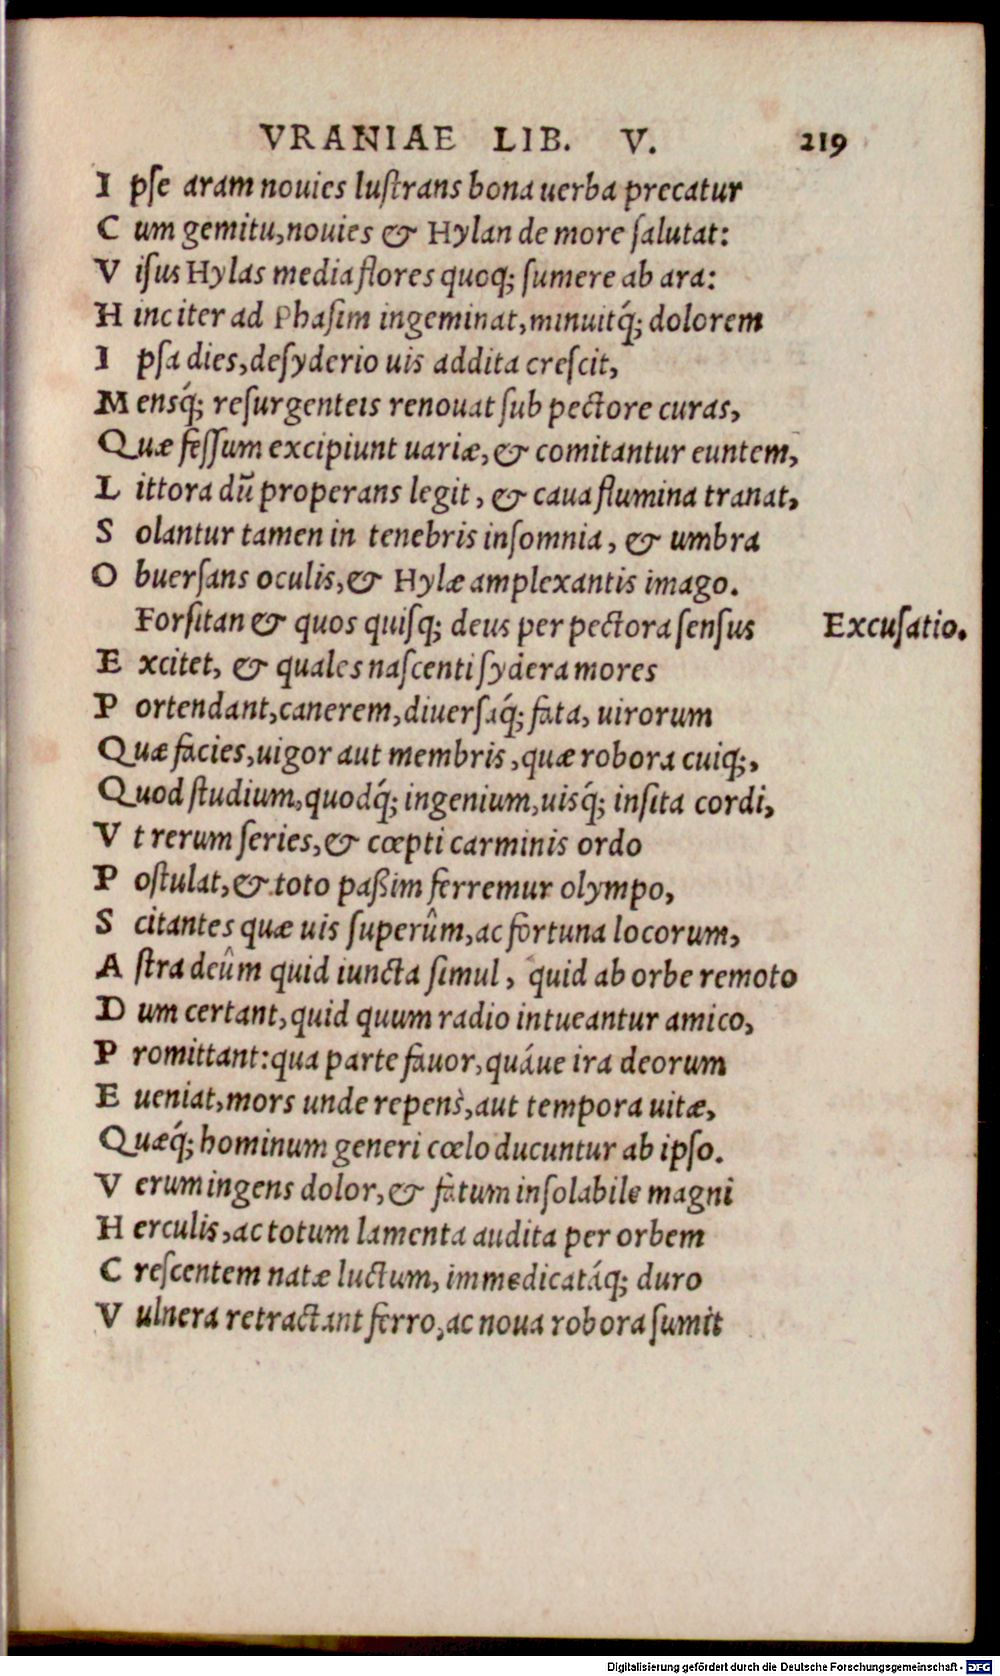 VRANIAE LIB. V. 219
I pse aram nouies lustrans bona uerba precatur
C um gemitu, nouies & Hylan de more salutat:
V isus Hylas media flores quoq; sumere ab ara:
H inc iter ad Phasim ingeminat, minuitq́; dolorem
I psa dies, desyderio uis addita crescit,
M ensq́; resurgenteis renouat sub pectore curas,
Quæ fessum excipiunt uariæ, & comitantur euntem,
L ittora dū properans legit, & caua flumina tranat,
S olantur tamen in tenebris insomnia, & umbra
O buersans oculis, & Hylæ amplexantis imago.
Forsitan & quos quisq; deus per pectora sensus Excusatio.
E xcitet, & quales nascenti sydera mores
P ortendant, canerem, diuersaq́; fata, uirorum
Quæ facies, uigor aut membris, quæ robora cuiq;,
Quod studium, quodq́; ingenium, uisq́; insita cordi,
V t rerum series, & cœpti carminis ordo
P ostulat, & toto paßim ferremur olympo,
S citantes quæ uis superûm, ac fortuna locorum,
A stra deûm quid iuncta simul, quid ab orbe remoto
D um certant, quid quum radio intueantur amico,
P romittant: qua parte fauor, quáue ira deorum
E ueniat, mors unde repens, aut tempora uitæ,
Quæq́; hominum generi cœlo ducuntur ab ipso.
V erum ingens dolor, & fatum insolabile magni
H erculis, ac totum lamenta audita per orbem
C rescentem natæ luctum, immedicatáq; duro
V ulnera retractant ferro, ac noua robora sumit
Digitalisierung gefördert durch die Deutsche Forschungsgemeinschaft - DFG